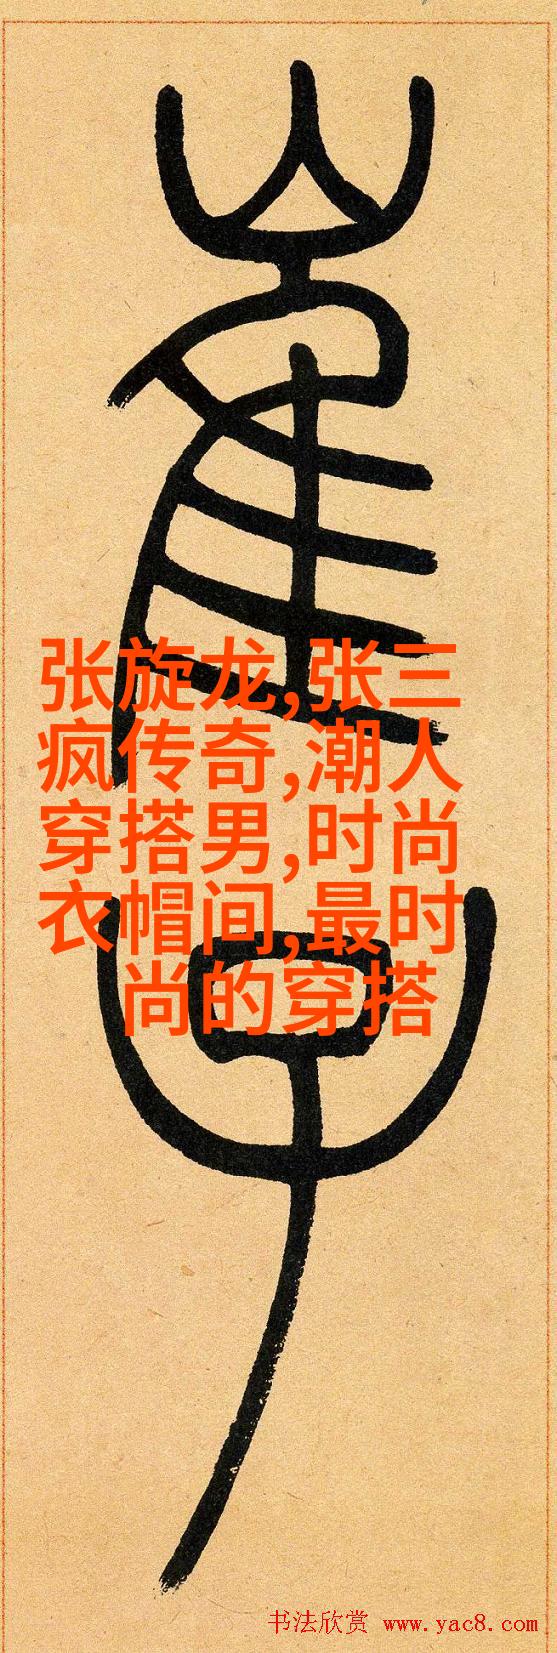 崔子
张旋龙,张三
疯传奇,潮人
穿搭男,时尚
衣帽间,最时
尚的穿搭
书法欣赏 www.yac8.com